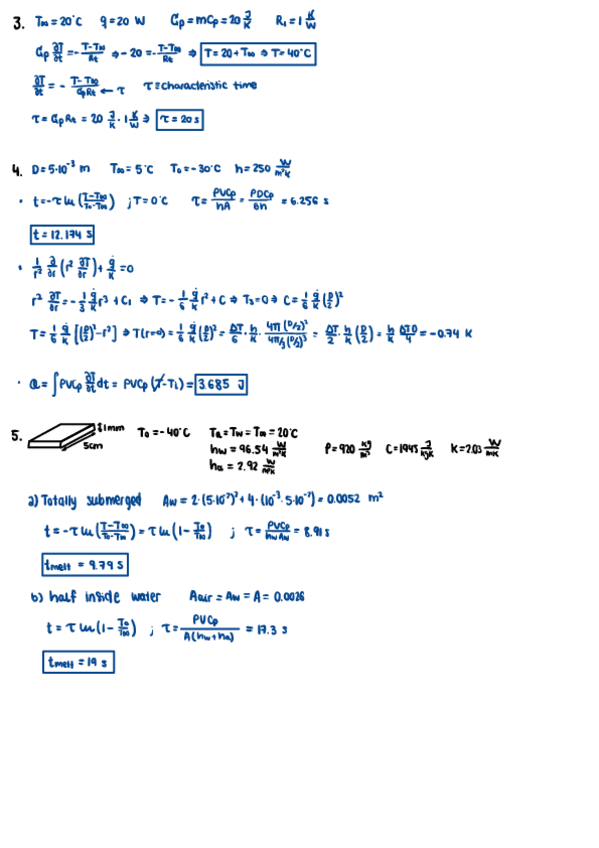 3. T∞ = 20°C q = 20 W Cp = mcp = 20 J/K R₁ = 1 K/W
Cp ∂T/∂t = - (T-T∞)/Rt ⇒ -20 = - (T-T∞)/Rt ⇒ T = 20 + T∞ ⇒ T = 40°C
∂T/∂t = - (T-T∞)/(CpRt) ← τ τ ≡ characteristic time
τ = CpRt = 20 J/K · 1 K/W ⇒ τ = 20 s
4. D = 5·10⁻³ m T∞ = 5°C T₀ = -30°C h = 250 W/m²K
· t = -τ ln((T-T∞)/(T₀-T∞)) ; T = 0°C τ = ρVCp/hA = ρDCp/6h = 6.256 s
t = 12.174 s
· 1/r² ∂/∂r (r² ∂T/∂r) + q̇/k = 0
r² ∂T/∂r = - 1/3 q̇/k r³ + C₁ ⇒ T = - 1/6 q̇/k r² + C ⇒ Ts = 0 ⇒ C = 1/6 q̇/k (D/2)²
T = 1/6 q̇/k [(D/2)² - r²] ⇒ T(r=0) = 1/6 q̇/k (D/2)² = ΔT/6 · h/k · 4π(D/2)²/(4π/3 (D/2)³) = ΔT/2 · h/k (D/2) = h/k ΔTD/4 = -0.74 K
· Q = ∫ρVCp ∂T/∂t dt = ρVCp (T-T₁) = 3.685 J
5. 1mm 5cm T₀ = -40°C Ta = Tw = T∞ = 20°C
hw = 96.54 W/m²K ρ = 920 kg/m³ C = 1945 J/kgK K = 2.03 W/mK
ha = 2.92 W/m²K
a) Totally submerged Aw = 2·(5·10⁻²)² + 4·(10⁻³·5·10⁻²) = 0.0052 m²
t = -τ ln((T-T∞)/(T₀-T∞)) = τ ln(1 - T₀/T∞) ; τ = ρVCp/hwAw = 8.91 s
tmelt = 9.79 s
b) half inside water Aair = Aw = A = 0.0026
t = τ ln(1 - T₀/T∞) ; τ = ρVCp/A(hw+ha) = 17.3 s
tmelt = 19 s